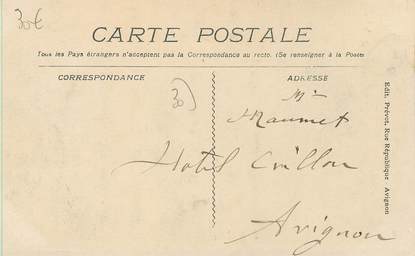 30€
CARTE POSTALE
Tous les Pays étrangers n'acceptent pas la Correspondance au recto. (Se renseigner à la Poste)
CORRESPONDANCE
ADRESSE
30
Mr
Maumet
Hotel Crillon
Avignon
Edit. Prévot, Rue République Avignon